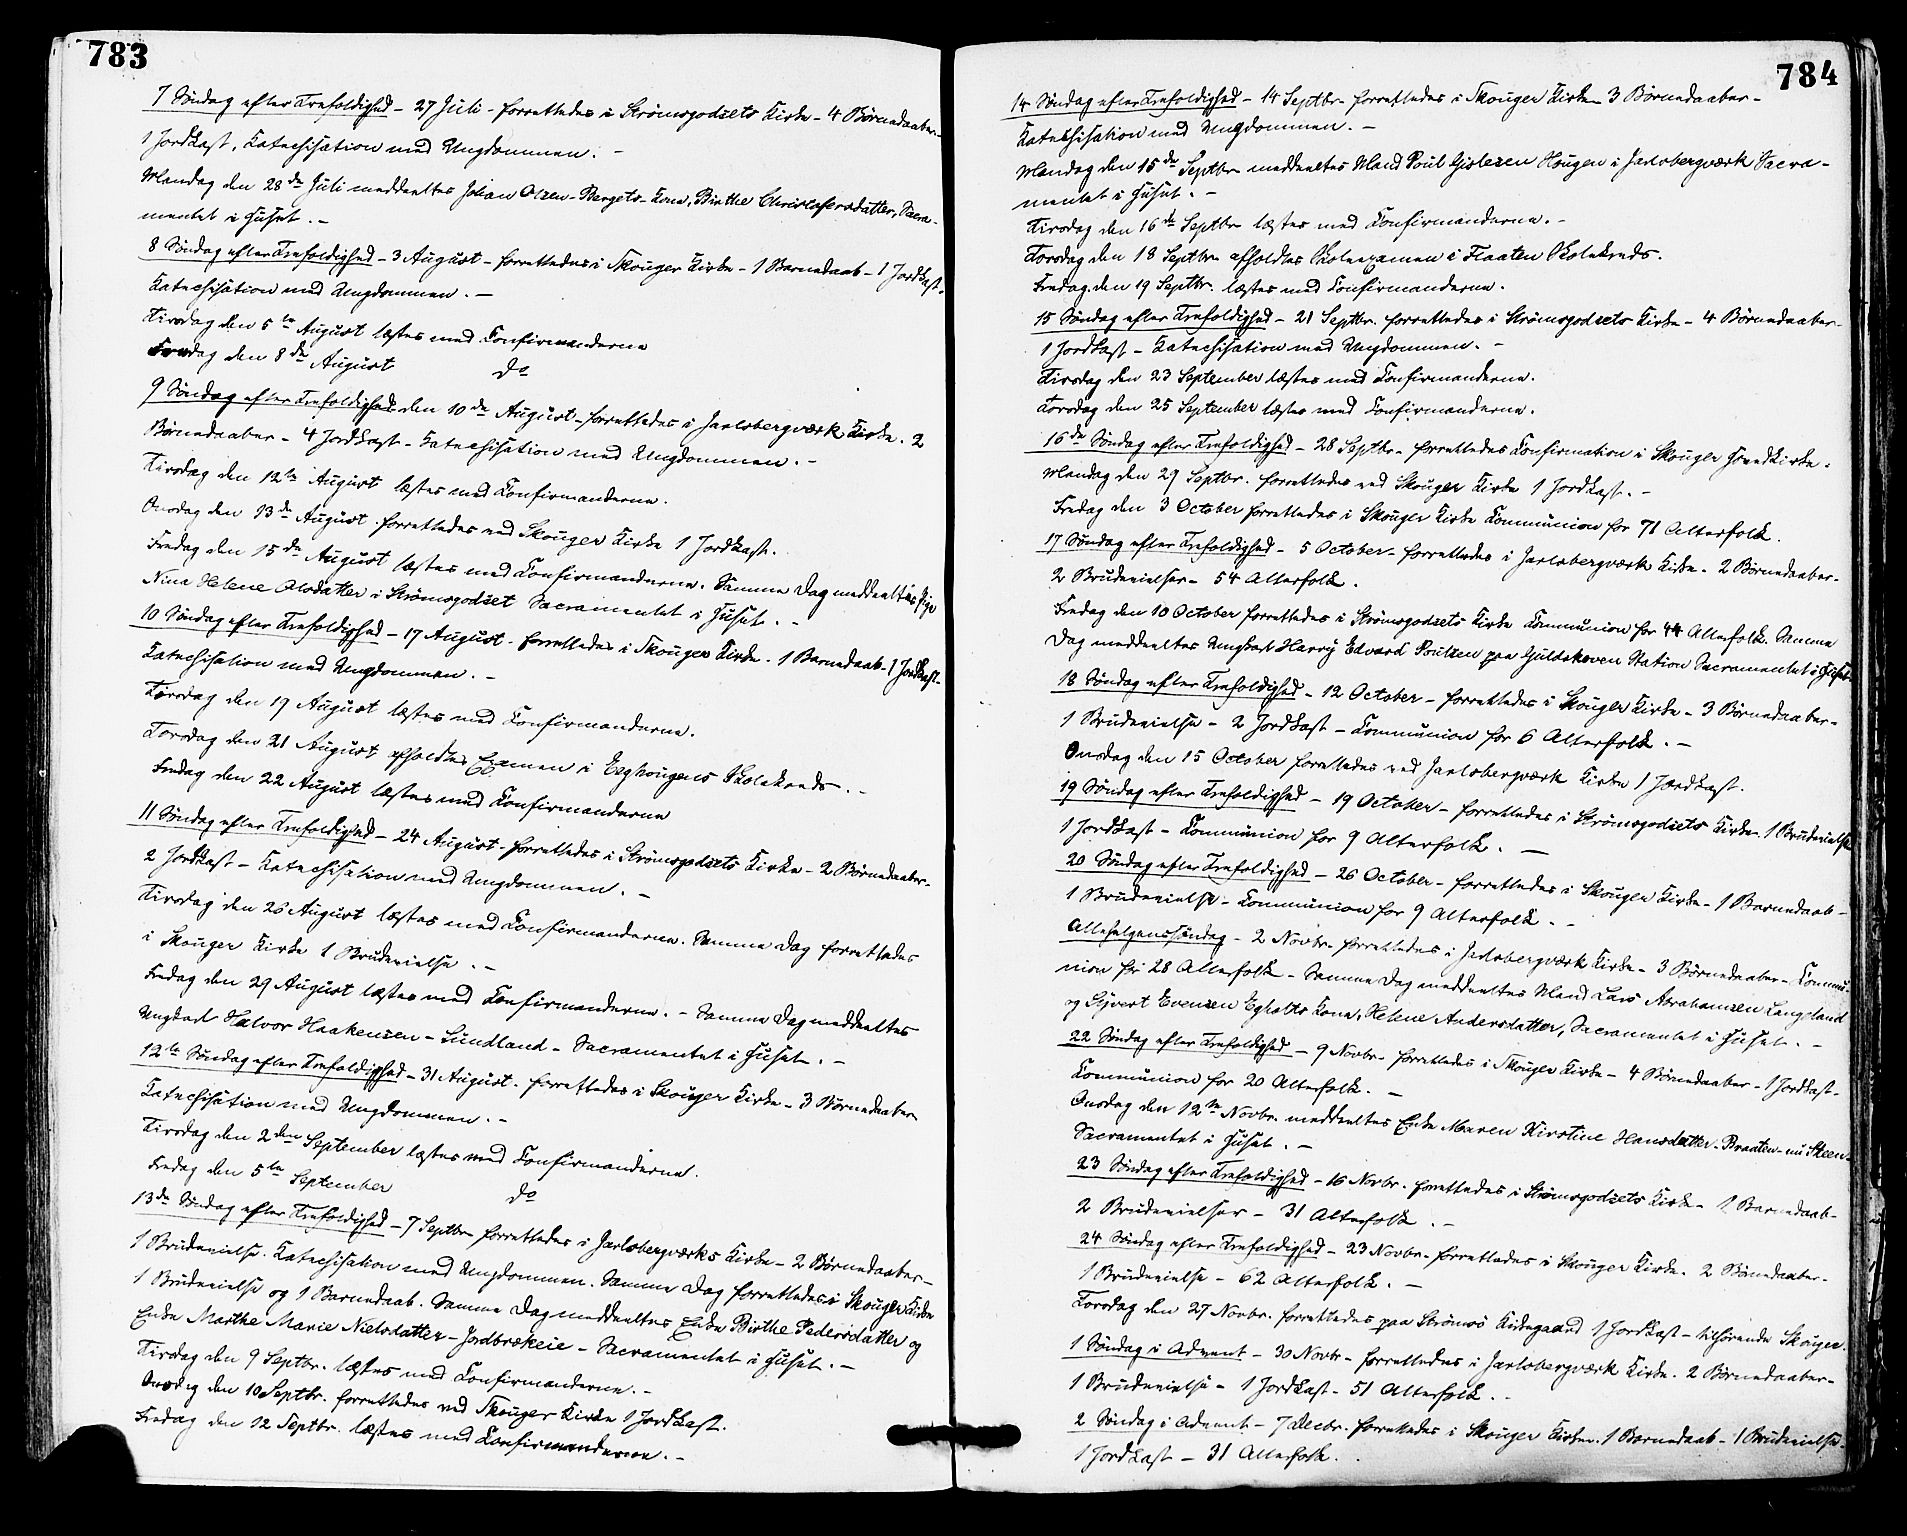 783
7 Söndag efter Trefoldighed - 27 Juli - forrettedes i Strömsgodsets Kirke - 4 Børnedaaber -
1 Jordkast. Katechisation med Ungdommen. -
Mandag den 28de Juli meddeeltes Johan Olsen - Bergets - Kone, Birthe Christofersdatter, Sacra-
mentet i Huset. -
8 Söndag efter Trefoldighed - 3 August - forrettedes i Skouger Kirke - 1 Barnedaab - 1 Jordkast.
Katechisation med Ungdommen. -
Tirsdag den 5te August læstes med Confirmanderne
Fredag den 8de August do
9 Söndag efter Trefoldighed den 10de August - forrettedes i Jarlsbergværk Kirke. 2
Børnedaaber - 4 Jordkast - Katechisation med Ungdommen. -
Tirsdag den 12te August læstes med Confirmanderne.
Onsdag den 13de August forrettedes ved Skouger Kirke 1 Jordkast.
Fredag den 15de August læstes med Confirmanderne. Samme Dag meddeeltes Pige
Nina Helene Olsdatter i Strömsgodset Sacramentet i Huset. -
10 Söndag efter Trefoldighed - 17 August - forrettedes i Skouger Kirke. 1 Barnedaab - 1 Jordkast -
Katechisation med Ungdommen. -
Tirsdag den 19 August læstes med Confirmanderne.
Torsdag den 21 August afholdtes Examen i Eeghougens Skolekreds. -
Fredag den 22 August læstes med Confirmanderne
11 Söndag efter Trefoldighed - 24 August - forrettedes i Strömsgodsets Kirke - 2 Børnedaaber -
2 Jordkast - Katechisation med Ungdommen. -
Tirsdag den 26 August læstes med Confirmanderne. Samme Dag forrettedes
i Skouger Kirke 1 Brudevielse. -
Fredag den 29 August læstes med Confirmanderne. - Samme Dag meddeeltes
Ungkarl Halvor Haakensen - Sundland - Sacramentet i Huset. -
12te Söndag efter Trefoldighed - 31 August. forrettedes i Skouger Kirke - 3 Børnedaaber
Katechisation med Ungdommen. -
Tirsdag den 2den September læstes med Confirmanderne.
Fredag den 5te September do
13de Söndag efter Trefoldighed - 7 Septbr forrettedes i Jarlsbergværks Kirke - 2 Børnedaaber -
1 Brudevielse. Katechisation med Ungdommen. Samme Dag forrettedes i Skouger Kirke
1 Brudevielse og 1 Barnedaab. Samme Dag meddeeltes Enke Birthe Pedersdatter og
Enke Marthe Marie Nielsdatter - Jordbrækeie - Sacramentet i Huset. -
Tirsdag den 9 Septbr. læstes med Confirmanderne. -
Onsdag den 10 Septbr. forrettedes ved Skouger Kirke 1 Jordkast.
Fredag den 12 Septbr. læstes med Confirmanderne. -
784
14 Söndag efter Trefoldighed - 14 Septbr forrettedes i Skouger Kirke 3 Børnedaaber -
Katechisation med Ungdommen. -
Mandag den 15de Septbr meddeeltes Mand Poul Gislesen Hougen i Jarlsbergværk Sacra-
mentet i Huset. -
Tirsdag den 16de Septbr læstes med Confirmanderne. -
Torsdag den 18 Septbr afholdtes Skoleexamen i Flaaten Skolekreds.
Fredag den 19 Septbr. læstes med Confirmanderne.
15 Söndag efter Trefoldighed - 21 Septbr. forrettedes i Strömsgodsets Kirke - 4 Børnedaaber -
1 Jordkast - Katechisation med Ungdommen. -
Tirsdag den 23 September læstes med Confirmanderne.
Torsdag den 25 September læstes med Confirmanderne.
16de Söndag efter Trefoldighed - 28 Septbr - forrettedes Confirmation i Skouger Hovedkirke.
Mandag den 29 Septbr. forrettedes ved Skouger Kirke 1 Jordkast. -
Fredag den 3 October forrettedes i Skouger Kirke Communion for 71 Alterfolk.
17 Söndag efter Trefoldighed - 5 October - forrettedes i Jarlsbergværk Kirke - 2 Børnedaaber -
2 Brudevielser - 54 Alterfolk.
Fredag den 10 October forrettedes i Strömsgodsets Kirke Communion for 44 Alterfolk. Samme
Dag meddeeltes Ungkarl Harry Edvard Poulsen paa Guldskoven Station Sacramentet i Huset.
18 Söndag efter Trefoldighed - 12 October - forrettedes i Skouger Kirke - 3 Børnedaaber -
1 Brudevielse - 2 Jordkast - Communion for 6 Alterfolk. -
Onsdag den 15 October forrettedes ved Jarlsbergværk Kirke 1 Jordkast.
19 Söndag efter Trefoldighed - 19 October - forrettedes i Strömsgodsets Kirke. 1 Brudevielse
1 Jordkast - Communion for 9 Alterfolk. -
20 Söndag efter Trefoldighed - 26 October - forrettedes i Skouger Kirke - 1 Barnedaab -
1 Brudevielse - Communion for 9 Alterfolk. -
Allehelgenssöndag - 2 Novbr - forrettedes i Jarlsbergværk Kirke - 3 Børnedaaber - Commu-
nion for 28 Alterfolk - Samme Dag meddeeltes Mand Lars Abrahamsen Langeland
og Syvert Evensen Egholts Kone, Helene Andersdatter, Sacramentet i Huset. -
22 Söndag efter Trefoldighed - 9 Novbr - forrettedes i Skouger Kirke - 4 Børnedaaber - 1 Jordkast -
Communion for 20 Alterfolk. -
Onsdag den 12te Novbr. meddeeltes Enke Maren Kirstine Hansdatter - Braaten - nu Skeen -
Sacramentet i Huset. -
23 Söndag efter Trefoldighed - 16 Novbr. forrettedes i Strömsgodsets Kirke - 1 Barnedaab -
2 Brudevielser - 31 Alterfolk. -
24 Söndag efter Trefoldighed - 23 Novbr - forrettedes i Skouger Kirke. 2 Børnedaaber -
1 Brudevielse - 62 Alterfolk. -
Torsdag den 27 Novbr. forrettedes paa Strömsö Kirkegaard 1 Jordkast - tilhørende Skouger.
1 Söndag i Advent - 30 Novbr - forrettedes i Jarlsbergværk Kirke. 2 Børnedaaber -
1 Brudevielse - 1 Jordkast - 51 Alterfolk. -
2 Söndag i Advent - 7 Decbr. forrettedes i Skouger Kirke. 1 Barnedaab - 1 Brudevielse -
1 Jordkast - 31 Alterfolk.